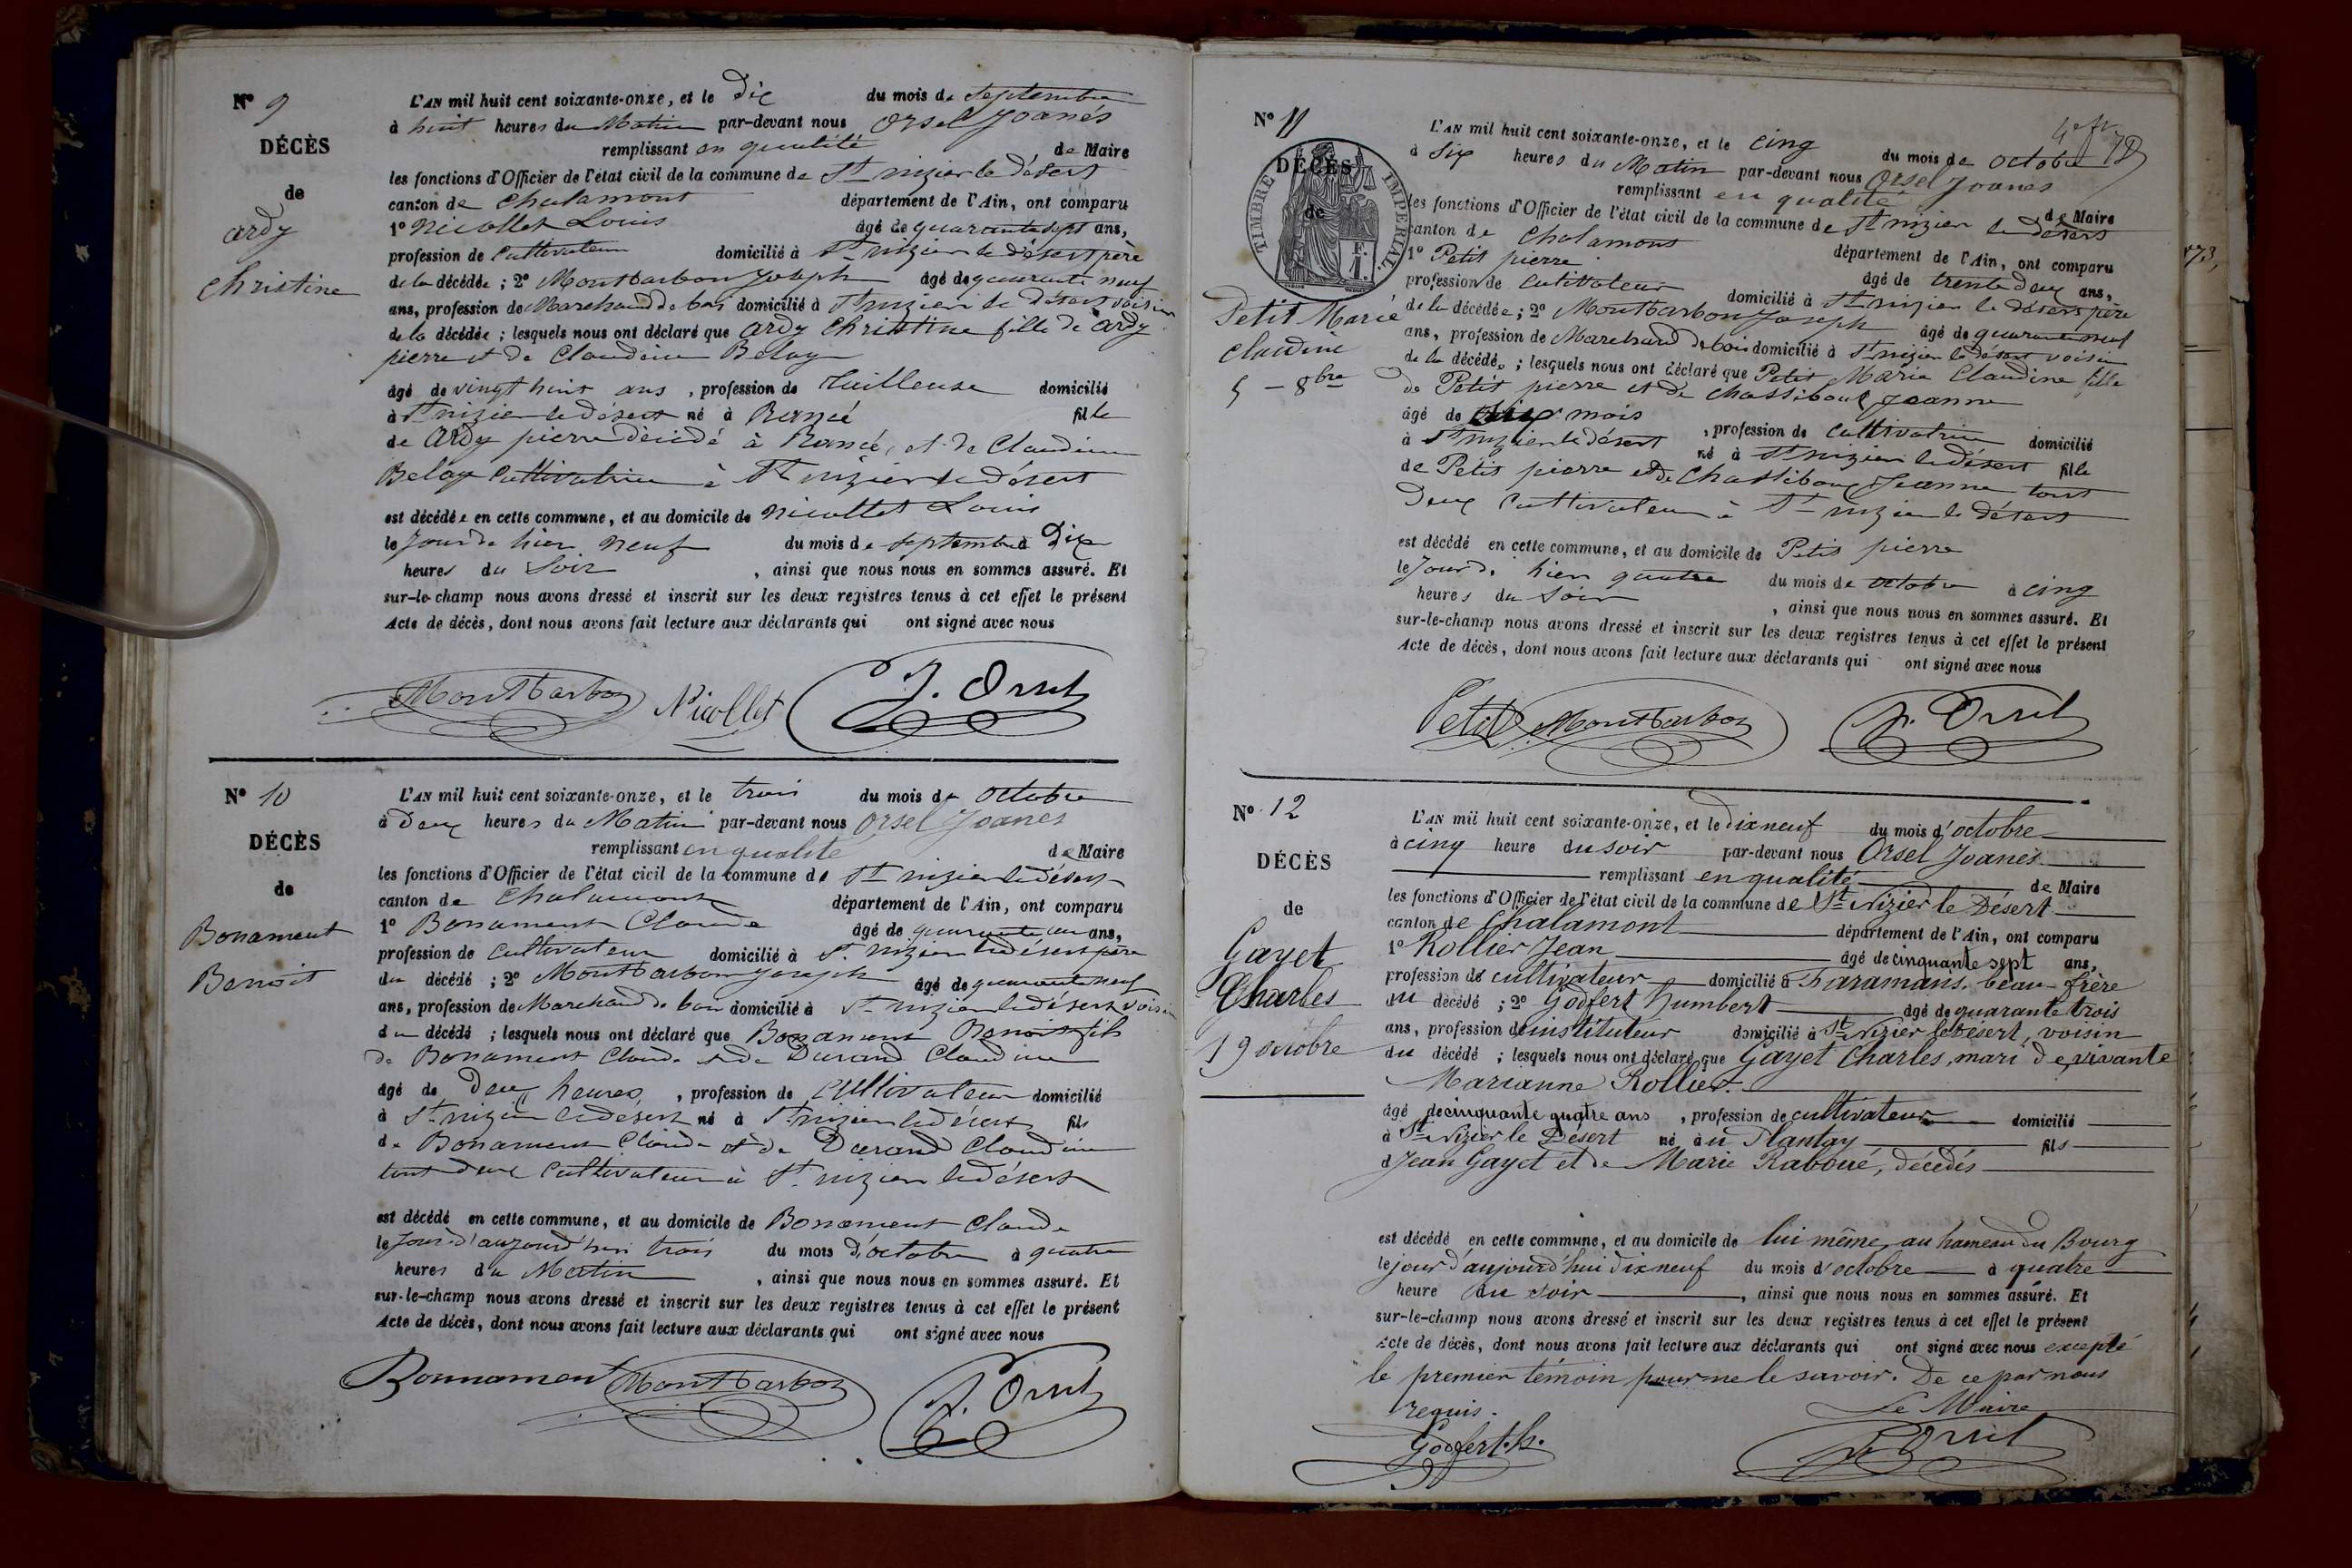 N° 9
DÉCÈS
de
Ardy
Christine
L'AN mil huit cent soixante-onze, et le Dix du mois de Septembre
à huit heures du Matin par-devant nous Orsel Joanés
remplissant en qualité de Maire
les fonctions d'Officier de l'état civil de la commune de St nizier le désert
canton de Chalamont département de l'Ain, ont comparu
1° Nicollet Louis âgé de quarante sept ans,
profession de Cultivateur domicilié à St nizier le désert père
de la décédée ; 2° Montbarbon Joseph âgé de quarante neuf
ans, profession de Marchand de bois domicilié à St nizier le désert voisin
de la décédée ; lesquels nous ont déclaré que Ardy Christine fille de Ardy
pierre et de Claudine Beloy
âgé de vingt huit ans , profession de Tailleuse domicilié
à St nizier le désert né à Rancé fille
de Ardy pierre décédé à Rancé, et de Claudine
Beloy Cultivatrice à St nizier le désert
est décédée en cette commune, et au domicile de Nicollet Louis
le Jour de hier neuf du mois de septembre à Dix
heures du Soir , ainsi que nous nous en sommes assuré. Et
sur-le-champ nous avons dressé et inscrit sur les deux registres tenus à cet effet le présent
Acte de décès, dont nous avons fait lecture aux déclarants qui ont signé avec nous
Montbarbon Nicollet J. Orsel
N° 10
DÉCÈS
de
Bonament
Benoit
L'AN mil huit cent soixante-onze, et le trois du mois de Octobre
à Deux heures du Matin par-devant nous Orsel Joanes
remplissant en qualité de Maire
les fonctions d'Officier de l'état civil de la commune de St nizier le désert
canton de Chalamont département de l'Ain, ont comparu
1° Bonament Claude âgé de quarante un ans,
profession de Cultivateur domicilié à St nizier le désert père
du décédé ; 2° Montbarbon Joseph âgé de quarante neuf
ans, profession de Marchand de bois domicilié à St nizier le désert voisin
du décédé ; lesquels nous ont déclaré que Bonament Benoit fils
de Bonament Claude et de Durand Claudine
âgé de Deux heures , profession de Cultivateur domicilié
à St nizier le désert né à St nizier le désert fils
de Bonament Claude et de Durand Claudine
tout deux Cultivateur à St nizier le désert
est décédé en cette commune, et au domicile de Bonament Claude
le Jour d'aujourd'hui trois du mois d'octobre à quatre
heures du Matin , ainsi que nous nous en sommes assuré. Et
sur-le-champ nous avons dressé et inscrit sur les deux registres tenus à cet effet le présent
Acte de décès, dont nous avons fait lecture aux déclarants qui ont signé avec nous
Bonnament Montbarbon J. Orsel
N° 11
DÉCÈS
de
TIMBRE IMPÉRIAL
1 F.
Petit Marie
Claudine
5 - 8bre
L'AN mil huit cent soixante-onze, et le cinq du mois de octobre
à Six heures du Matin par-devant nous Orsel Joanes
remplissant en qualité de Maire
les fonctions d'Officier de l'état civil de la commune de St nizier le désert
canton de Chalamont département de l'Ain, ont comparu
1° Petit pierre âgé de trente deux ans,
profession de Cultivateur domicilié à St nizier le désert père
de la décédée ; 2° Montbarbon Joseph âgé de quarante neuf
ans, profession de Marchand de bois domicilié à St nizier le désert voisin
de la décédée ; lesquels nous ont déclaré que Petit Marie Claudine fille
de Petit pierre et de Chassiboux Jeanne
âgé de mois , profession de Cultivatrice domicilié
à St nizier le désert né à St nizier le désert fille
de Petit pierre et de Chassiboux Jeanne tout
Deux Cultivateur à St nizier le désert
est décédé en cette commune, et au domicile de Petit pierre
le Jour de hier quatre du mois de octobre à cinq
heures du Soir , ainsi que nous nous en sommes assuré. Et
sur-le-champ nous avons dressé et inscrit sur les deux registres tenus à cet effet le présent
Acte de décès, dont nous avons fait lecture aux déclarants qui ont signé avec nous
Petit Montbarbon J. Orsel
N° 12
DÉCÈS
de
Gayet
Charles
19 octobre
L'AN mil huit cent soixante-onze, et le dix neuf du mois d'octobre
à cinq heure du soir par-devant nous Orsel Joanes
remplissant en qualité de Maire
les fonctions d'Officier de l'état civil de la commune de St Nizier le Désert
canton de Chalamont département de l'Ain, ont comparu
1° Rollier Jean âgé de cinquante sept ans,
profession de cultivateur domicilié à Faramans, beau-frère
du décédé ; 2° Godfert humbert âgé de quarante trois
ans, profession d'instituteur domicilié à St Nizier le Désert, voisin
du décédé ; lesquels nous ont déclaré que Gayet Charles, mari de vivante
Marianne Rollier.
âgé de cinquante quatre ans , profession de cultivateur domicilié
à St Nizier le Désert né au Plantay fils
d Jean Gayet et de Marie Raboué, décédés
est décédé en cette commune, et au domicile de lui même, au hameau du Bourg
le jour d'aujourd'hui dix neuf du mois d'octobre à quatre
heure du soir , ainsi que nous nous en sommes assuré. Et
sur-le-champ nous avons dressé et inscrit sur les deux registres tenus à cet effet le présent
Acte de décès, dont nous avons fait lecture aux déclarants qui ont signé avec nous excepté
le premier témoin pour ne le savoir. De ce par nous
requis.
Le Maire
Godfert. h. J. Orsel